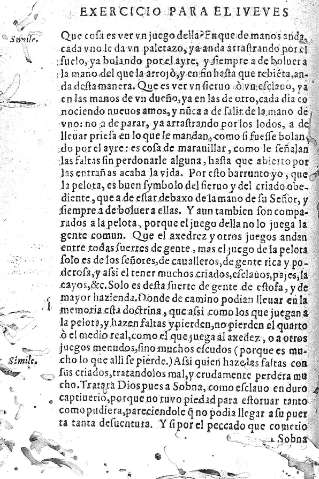 EXERCICIO PARA EL IVEVES
Simile.
Que cosa es ver vn juego della? En que de manos anda,
cada vno le da vn paletazo, ya anda arrastrando por el
suelo, ya bolando por el ayre, y siempre a de boluer a
la mano del que la arrojò, y en fin hasta que rebiẽta, an-
da desta manera. Que es ver vn sieruo ò vn esclauo, ya
en las manos de vn dueño, ya en las de otro, cada dia co
nociendo nueuos amos, y nũca a de salir de la mano de
vno: no a de parar, ya arrastrando por los lodos, a de
lleuar priessa en lo que le mandan, como si fuesse bolan
do por el ayre: es cosa de marauillar, como le señalan
las faltas sin perdonarle alguna, hasta que abierto por
las entrañas acaba la vida. Por esto barrunto yo, que
la pelota, es buen symbolo del sieruo y del criado obe-
diente, que a de estar debaxo de la mano de su Señor, y
siempre a de boluer a ellas. Y aun tambien son compa-
rados a la pelota, porque el juego della no lo juega la
gente comun. Que el axedrez y otros juegos andan
entre todas suertes de gente, mas el juego de la pelota
solo es de los señores, de caualleros, de gente rica y po-
derosa, y assi el tener muchos criados, esclauos, pajes, la
cayos, &c. Solo es desta suerte de gente de estofa, y de
mayor hazienda. Donde de camino podian lleuar en la
memoria esta doctrina, que assi como los que juegan a
la pelota, y hazen faltas y pierden, no pierden el quarto
ò el medio real, como el que juega al axedez, o a otros
juegos menudos, sino muchos escudos (porque es mu-
Simile.
cho lo que alli se pierde.) Assi quien haze las faltas con
sus criados, tratandolos mal, y crudamente perdera mu
cho. Tratara Dios pues a Sobna, como esclauo en duro
captiuerio, porque no tuvo piedad para estoruar tanto
como pudiera, pareciendole q̃ no podia llegar a su puer
ta tanta desuentura. Y si por el peccado que cometio
Sobna